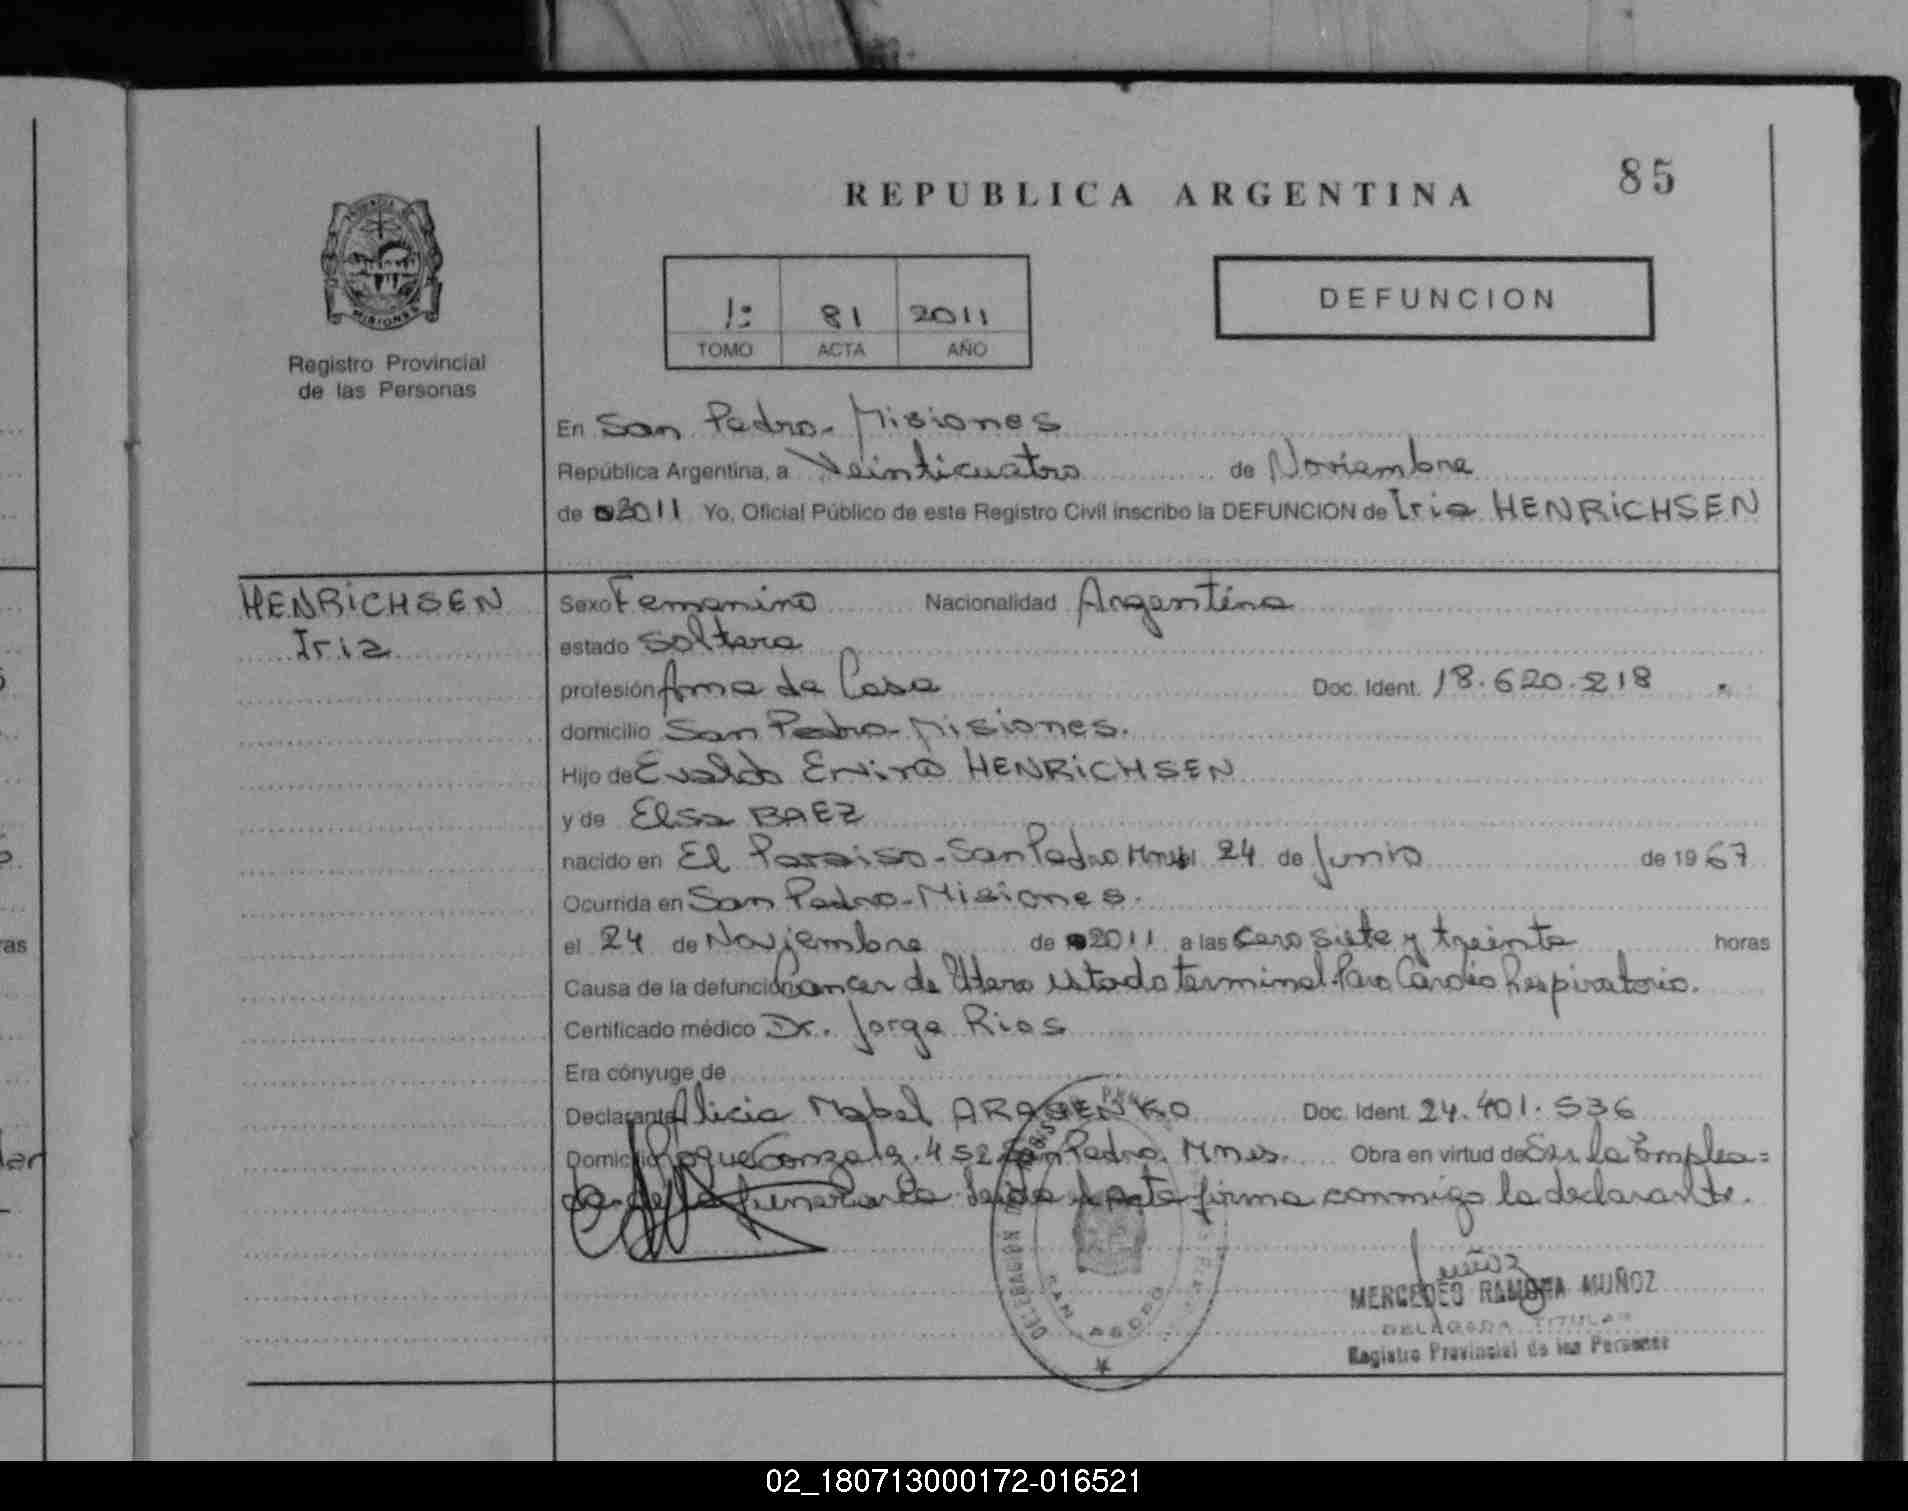 REPUBLICA ARGENTINA
85
MISIONES
Registro Provincial
de las Personas
1: 81 2011
TOMO ACTA AÑO
DEFUNCION
En San Pedro - Misiones
República Argentina, a Veinticuatro de Noviembre
de 2011 Yo, Oficial Público de este Registro Civil inscribo la DEFUNCION de Iria HENRiCHSEN
HENRiCHSEN
Iria
Sexo Femenino Nacionalidad Argentina
estado soltera
profesión Ama de Casa Doc. Ident. 18.620.218
domicilio San Pedro - Misiones.
Hijo de Evaldo HENRiCHSEN
y de Elsa BAEZ
nacido en El Paraiso - San Pedro Mnes 24 de Junio de 1967
Ocurrida en San Pedro - Misiones.
el 24 de Noviembre de 2011 a las cero siete y treinta horas
Causa de la defunción Cancer de Utero estado terminal. Paro Cardio Respiratorio.
Certificado médico Dr. Jorge Rios
Era cónyuge de
Declarante Alicia Mabel Doc. Ident. 24.401.536
Domicilio Roque Gonzalez. 452 San Pedro. Mnes. Obra en virtud de Ser la Emplea=
da de la funeraria. Leida el Acta firma conmigo la declarante.
Muñoz
MERCEDES RAMONA MUÑOZ
DELEGADA TITULAR
Registro Provincial de las Personas
DELEGACION
SAN PEDRO
02_180713000172-016521